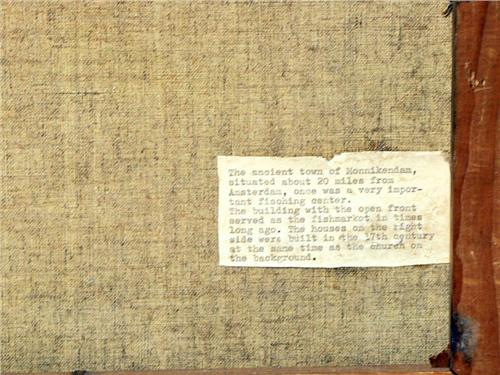 The ancient town of Monnikendam,
situated about 20 miles from
Amsterdam, once was a very impor-
tant fisching center.
The building with the open front
served as the fishmarket in times
long ago. The houses on the right
side were built in the 17th century
at the same time as the church on
the background.